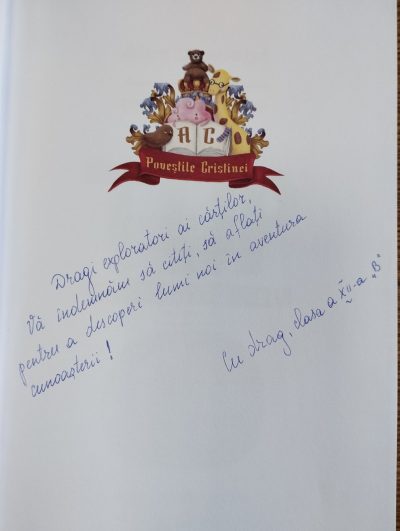 A C
Poveștile Cristinei
Dragi exploratori ai cărților,
Vă îndemnăm să citiți, să aflați
pentru a descoperi lumi noi în aventura
cunoașterii!
Cu drag, clasa a XII-a „B"